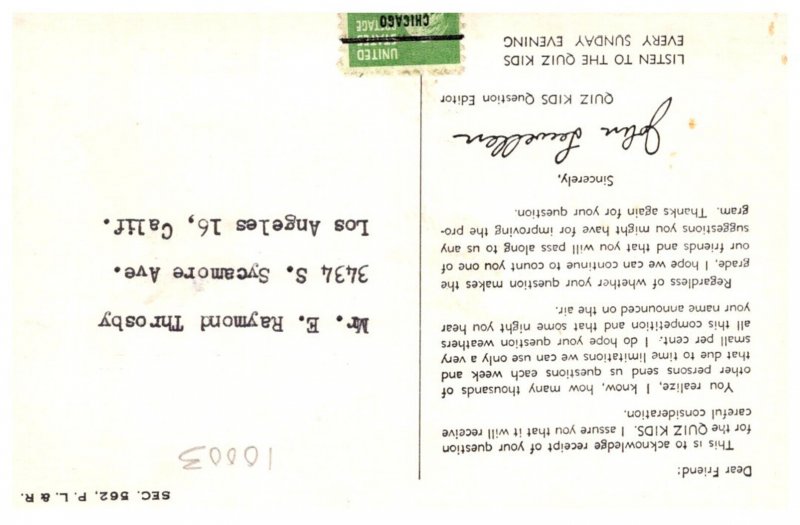 SEC. 562, P. L. & R.
10003
UNITED
STATES
POSTAGE
CHICAGO
Mr. E. Raymond Throsby
3434 S. Sycamore Ave.
Los Angeles 16, Calif.
Dear Friend:
This is to acknowledge receipt of your question
for the QUIZ KIDS. I assure you that it will receive
careful consideration.
You realize, I know, how many thousands of
other persons send us questions each week and
that due to time limitations we can use only a very
small per cent. I do hope your question weathers
all this competition and that some night you hear
your name announced on the air.
Regardless of whether your question makes the
grade, I hope we can continue to count you one of
our friends and that you will pass along to us any
suggestions you might have for improving the pro-
gram. Thanks again for your question.
Sincerely,
John Lewellen
QUIZ KIDS Question Editor
LISTEN TO THE QUIZ KIDS
EVERY SUNDAY EVENING